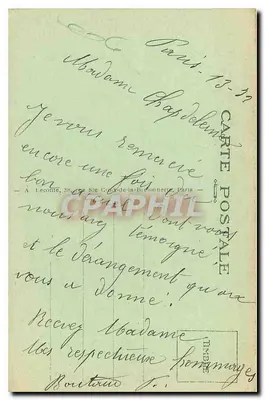 Paris - 13 - 
Madame Chapdelaine
Je vous remercie
encore une fois du
bon dont vous
nous avez témoigné
et le dérangement 
vous a donné !
Recevez Madame
Mes respectueux hommages
CARTE POSTALE
A. Leconte, Paris
CARTAPHIL
TIMBRE